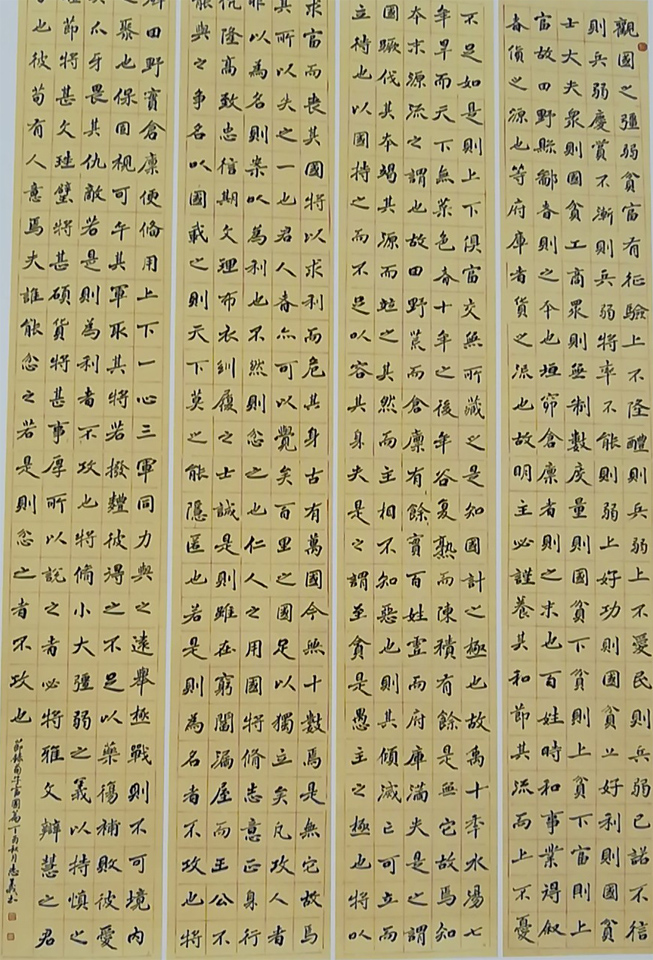 觀國之彊弱貧富有征驗上不隆禮則兵弱上不愛民則兵弱已諾不信
則兵弱慶賞不漸則兵弱將率不能則弱上好功則國貧上好利則國貧
士大夫衆則國貧工商眾則無制數度量則國貧下貧則上貧下富則上
富故田野縣鄙者則之本也垣窌倉廩者則之末也百姓時和事業得叙
者貨之源也等府庫者貨之流也故明主必謹養其和節其流而上不憂
不足如是則上下俱富交無所藏之是知國計之極也故禹十年水湯七
年旱而天下無菜色者十年之後年谷复熟而陳積有餘是無它故焉知
本末源流之謂也故田野荒而倉廩有餘實百姓虛而府庫滿夫是之謂
國蹶伐其本竭其源而並之其然而主相不知惡也則其傾滅亡可立而
立待也以國持之而不足以容其身夫是之謂至貧是愚主之極也將以
求富而喪其國將以求利而危其身古有萬國今無十數焉是無它故焉
其所以失之一也君人者亦可以覺矣百里之國足以獨立矣凡攻人者
非以為名則案以為利也不然則忿之也仁人之用國將脩志意正身行
伉隆高致忠信期文理布衣紃屨之士誠是則雖在窮閻漏屋而王公不
能與之爭名以國載之則天下莫之能隱匿也若是則為名者不攻也將
田野實倉廩便備用上下一心三軍同力與之遠舉極戰則不可境內
之聚也保固視可午其軍取其將若撥麷彼得之不足以藥傷補敗彼愛
其爪牙畏其仇敵若是則為利者不攻也將脩小大彊弱之義以持慎之
節將甚文珪璧將甚碩貨將甚事厚所以說之者必將雅文辯慧之君
也彼苟有人意焉夫誰能忿之若是則忿之者不攻也
節錄荀子富國篇丁酉秋月志義書